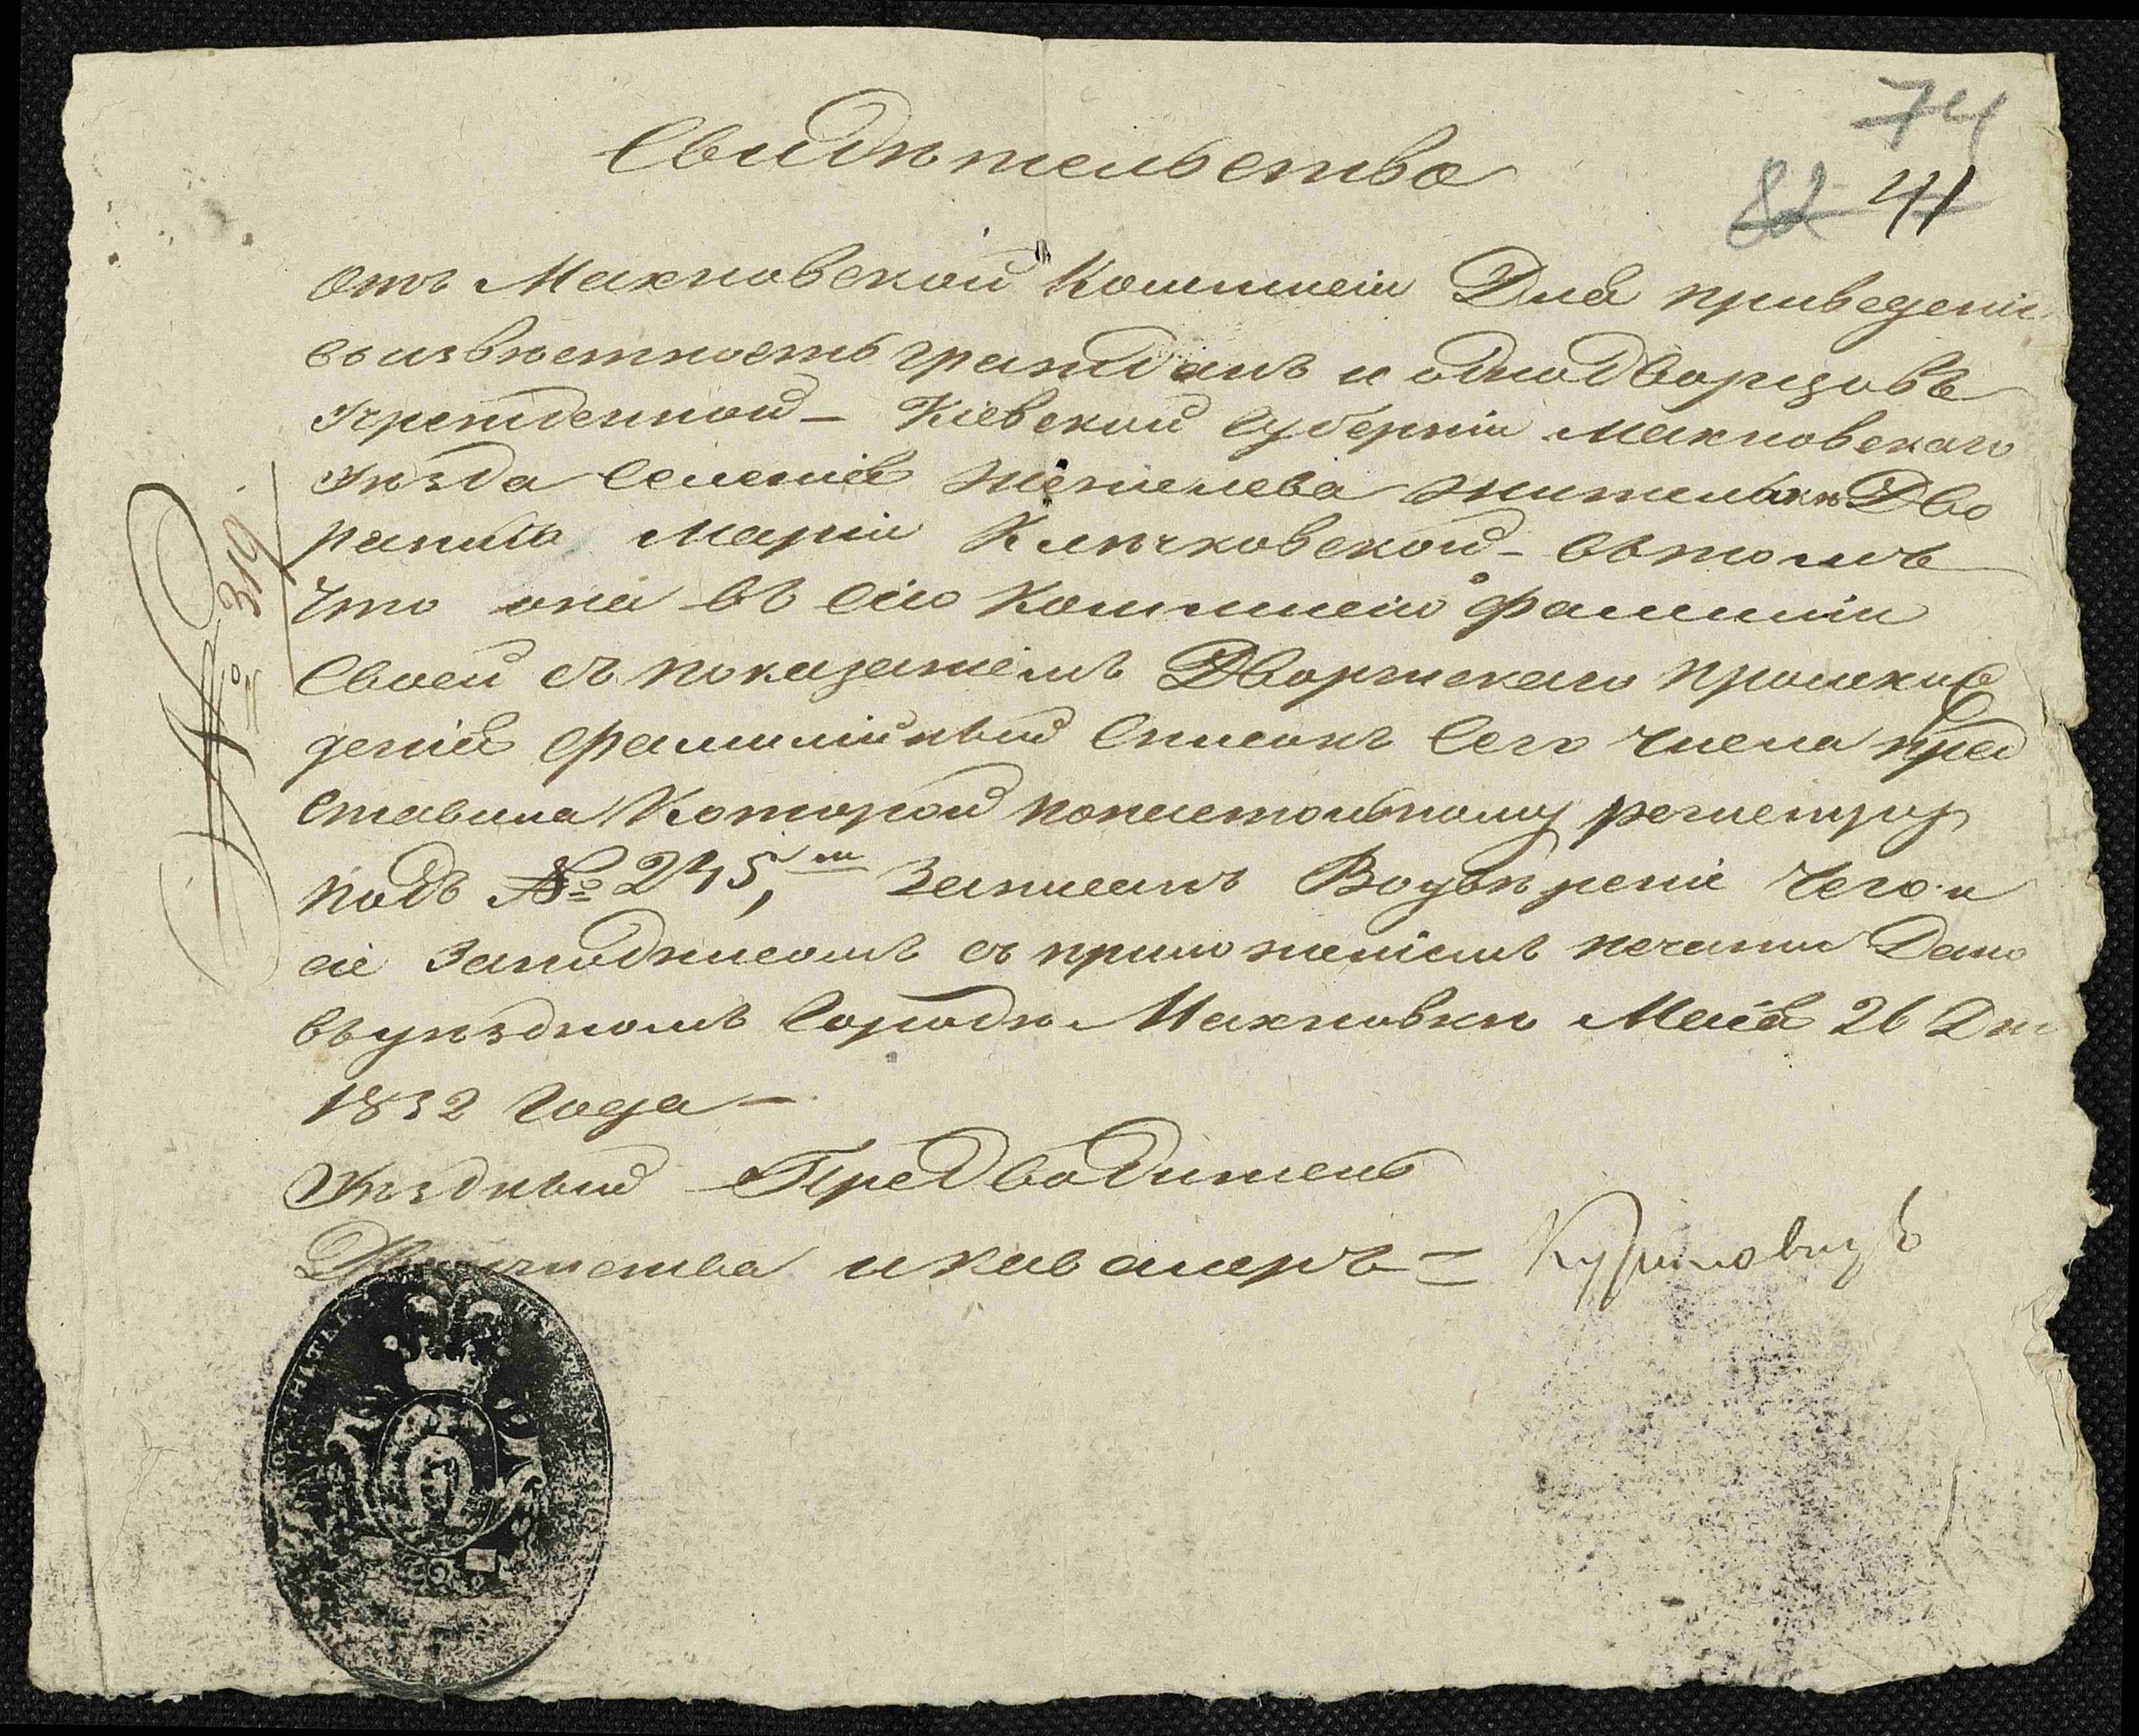 74
82 41
Свидѣтельство
отъ Махновской Коммисіи Для приведенія
въ извѣстность гражданъ и однодворцовъ
учрежденной – Кіевской губерніи Махновскаго
уѣзда Селенія жителькѣ Дво
рянкѣ Маріи Клѣчковской – въ томъ
что она въ сію Коммисію фамиліи
Своей съ показаніемъ Дворянскаго произхож
денія фамилійный Списокъ Сего числа пред
ставила Которой понастольному регистру
подъ № 245,мъ Записанъ Воувѣреніе чего и
сіе заподписомъ съ приложеніемъ печати Дано
въ уѣздномъ Городѣ Махновкѣ Маія 26 Дня
1832 года –
Уѣздный Предводитель
Дворянства и кавалеръ =
№ 319